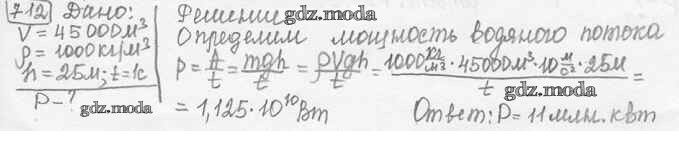 712 Дано:
V = 45000м³
ρ = 1000кг/м³
h = 25м; t = 1с
P - ?
gdz.moda
Решение
gdz.moda
Определим мощность водяного потока
P = A/t = mgh/t = ρVgh/t = 1000 кг/м³ · 45000м³ · 10 м/с² · 25м / t =
gdz.moda
= 1,125·10¹⁰ Вт
gdz.moda
Ответ: P = 11 млн. квт